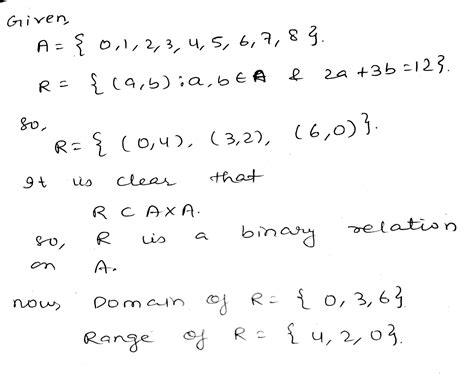 Given
A = { 0,1,2,3,4,5,6,7,8 }.
R = { (a,b) : a,b ∈ A & 2a + 3b = 12 }.
So,
R = { (0,4), (3,2), (6,0) }.
It is clear that
R ⊂ A×A.
so, R is a binary relation
on A.
now, Domain of R = { 0,3,6 }
Range of R = { 4,2,0 }.